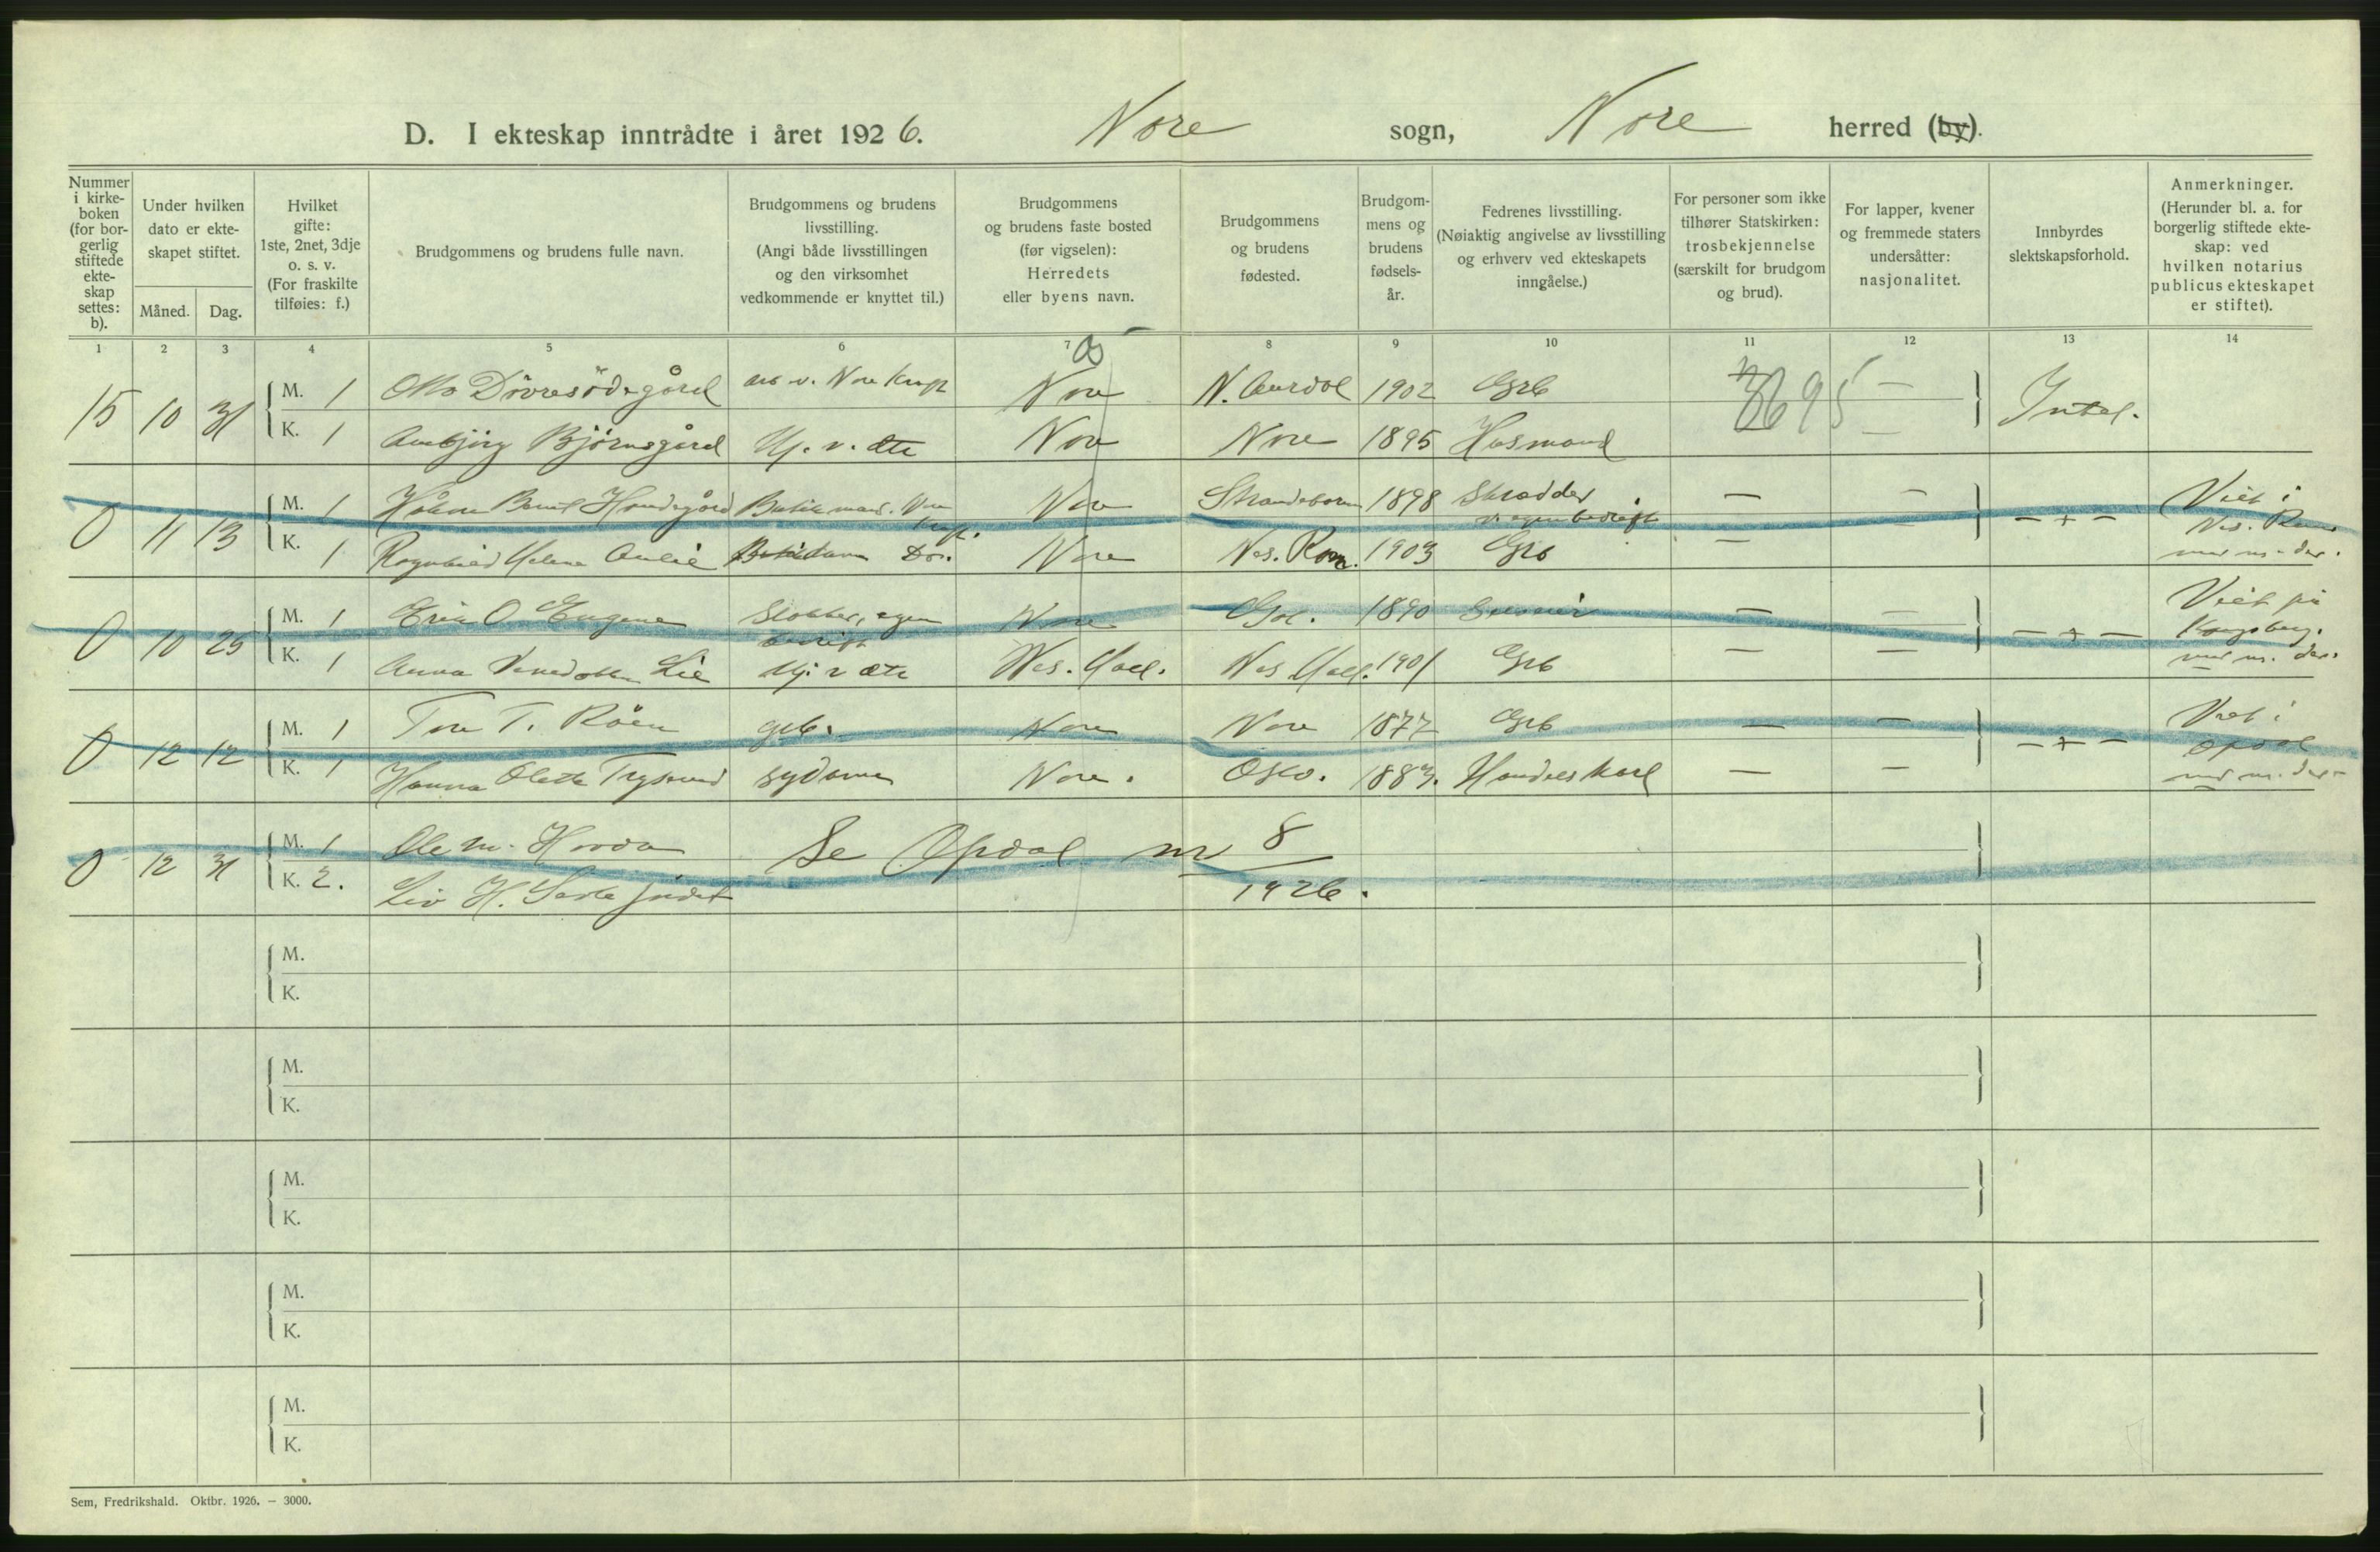 D. I ekteskap inntrådte i året 1926. Nore sogn, Nore herred (by).
Nummer i kirke-boken (for bor-gerlig stiftede ekte-skap settes: b).
Under hvilken dato er ekte-skapet stiftet.
Måned. Dag.
Hvilket gifte: 1ste, 2net, 3dje o. s. v. (For fraskilte tilføies: f.)
Brudgommens og brudens fulle navn.
Brudgommens og brudens livsstilling. (Angi både livsstillingen og den virksomhet vedkommende er knyttet til.)
Brudgommens og brudens faste bosted (før vigselen): Herredets eller byens navn.
Brudgommens og brudens fødested.
Brudgom-mens og brudens fødsels-år.
Fedrenes livsstilling. (Nøiaktig angivelse av livsstilling og erhverv ved ekteskapets inngåelse.)
For personer som ikke tilhører Statskirken: trosbekjennelse (særskilt for brudgom og brud).
For lapper, kvener og fremmede staters undersåtter: nasjonalitet.
Innbyrdes slektskapsforhold.
Anmerkninger. (Herunder bl. a. for borgerlig stiftede ekte-skap: ved hvilken notarius publicus ekteskapet er stiftet).
1 2 3 4 5 6 7 8 9 10 11 12 13 14
15 10 31 M. 1 Otto Dövresödegård arb v. Nore Nore N. Aurdal 1902 Grb —
K. 1 Bjørnsgård Hj. v. dte Nore Nore 1895 Husmand —
0 11 13 M. 1 Håkon Nore 1898 Skrædder — — — + — Viet i
v. egen bedrift Nes. Rom
K. 1 Ragnhild Helene Aulie Do. Nore Nes. Rom. 1903 Grb — med nr. der.
0 10 25 M. 1 Erik O Engene egen Nore Gol. 1890 — — — + — Viet på
bedrift Kongsberg.
K. 1 Anna Lie Hj. v dte Nes. Hall. Nes Hall. 1901 Grb — — med nr. der.
0 12 12 M. 1 Tore T. Röen grb. Nore Nore 1877 Grb — — — + — Viet i
Opdal
K. 1 Hanna Olette sydame Nore. Oslo. 1883. Handelskarl — — med nr. der
0 12 31 M. 1 Ole M. Hovda Se Opdal nr 8
K. 2. Liv H. 1926.
M.
K.
M.
K.
M.
K.
M.
K.
M.
K.
Sem, Fredrikshald. Oktbr. 1926. — 3000.